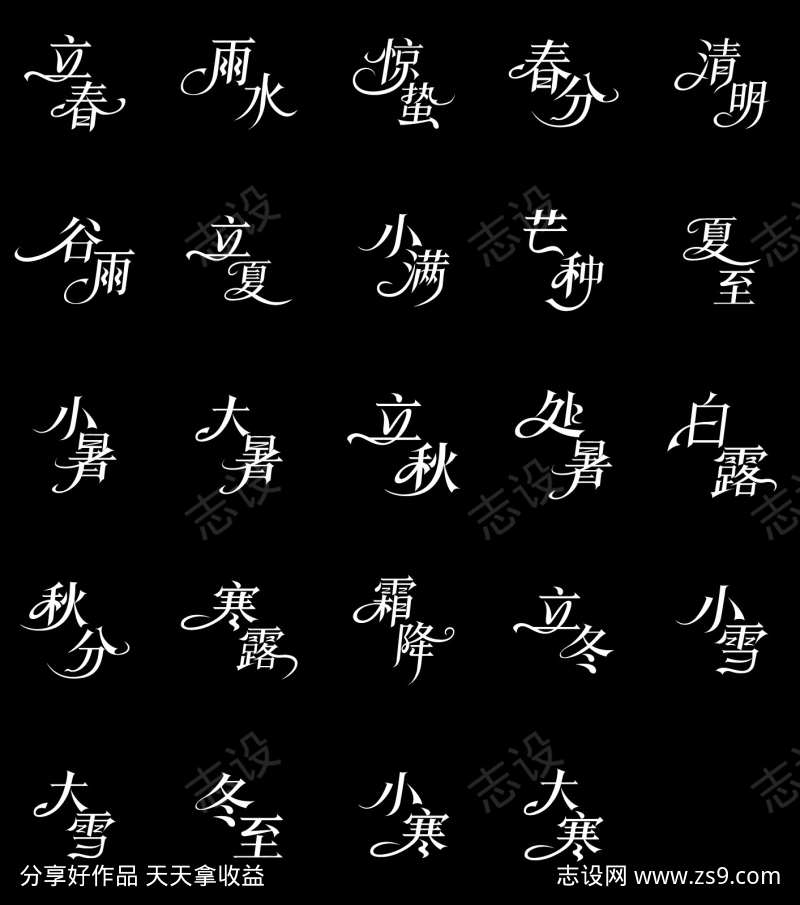 立春 雨水 惊蛰 春分 清明
谷雨 立夏 小满 芒种 夏至
小暑 大暑 立秋 处暑 白露
秋分 寒露 霜降 立冬 小雪
大雪 冬至 小寒 大寒
分享好作品 天天拿收益 志设网 www.zs9.com
志设
志设
志设
志设
志设
志设
志设
志设
志设